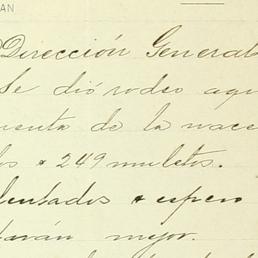 AN
Dirección General
Se dió rodeo aqu
uenta de la vace
los & 249 muletos.
lentados & espero
tarán mejor.